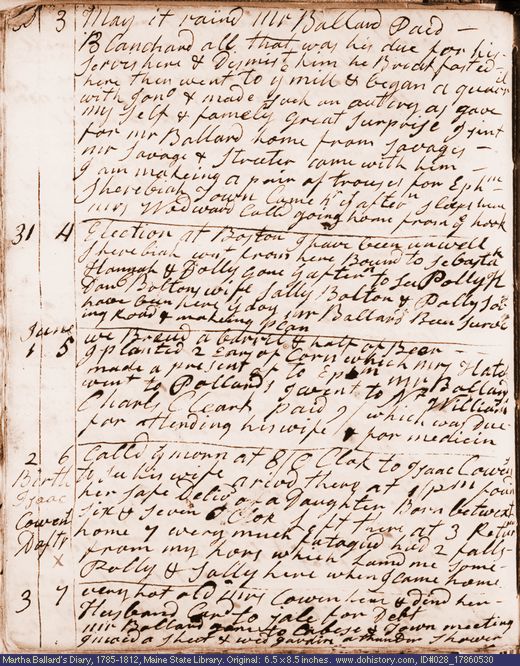 3 May it raind Mr Ballard Paid
Blanchard all that was his due for his
servis here & Dismist him he Breckfasted
here then went to ye mill & began a quarril
with Jona & made such an outcry as gave
my self & famely great surprise I sent
for mr Ballard home from savages
mr savage & Streeter came with him
I am makeing a pair of trouses for Ephm
Sherebiah Town Came here is aftern sleps here
mrs Woodward Calld going home from ye hook
31 4 Election at Boston I have been unwell
Sherebiah went from here Bound to sebasta
Hannah & Dolly gone ys aftern to see Polly
Dan Bolton wife Sally Bolton & Polly
have been here ys day mr Ballard Been
ing Road & making plan
June
1 5 we Brewd a barril & half of Beer
I planted 2 Ears of Corn which mrs
made a present of to Ephm mr Ballard
went to Pollards I went to mr Williams
Charls Cleark paid / which was Due
for attending his wife & for medicin
2 6 Calld ys morn at 8/ Clok to Isaac Cowen
Birth
to see his wife arivd there at 1 pm
Isaac
her safe Delivd of a Daughter Born between
Cowens
six & seven O Clok I left there at 3 Returnd
Dafts
home very much fatagud had 2 falls
X
from my hors which lamd me some
Polly & Sally here when I came home
3 7 very hot old mrs Cowen here & dind her
Husband Card to jale for Debt
mr Ballard gone to Cabese Town meeting
a shot & wed gardin a thunder shower
Martha Ballard's Diary, 1785-1812, Maine State Library. Original: 6.5 x 8.5 inches. www.dohistory.org, ID#028_17860530